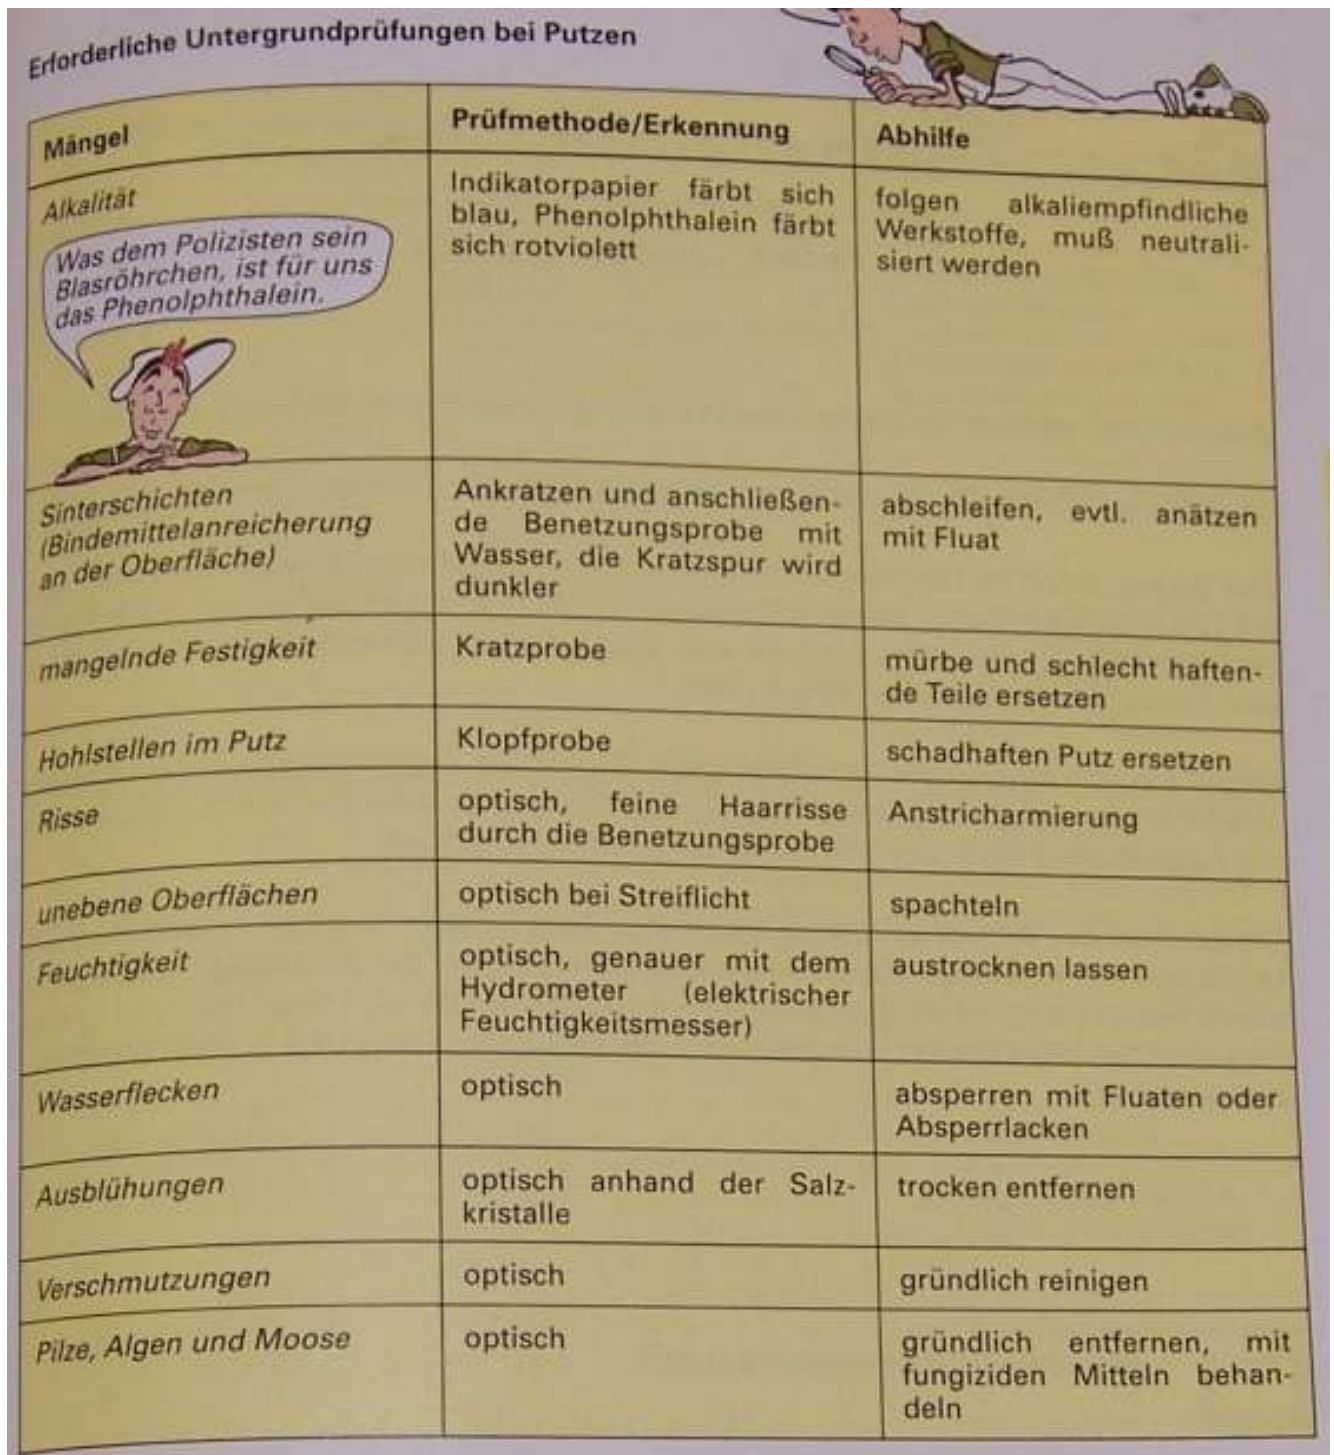 Erforderliche Untergrundprüfungen bei Putzen
Mängel
Prüfmethode/Erkennung
Abhilfe
Alkalität
Was dem Polizisten sein
Blasröhrchen, ist für uns
das Phenolphthalein.
Indikatorpapier färbt sich
blau, Phenolphthalein färbt
sich rotviolett
folgen alkaliempfindliche
Werkstoffe, muß neutrali-
siert werden
Sinterschichten
(Bindemittelanreicherung
an der Oberfläche)
Ankratzen und anschließen-
de Benetzungsprobe mit
Wasser, die Kratzspur wird
dunkler
abschleifen, evtl. anätzen
mit Fluat
mangelnde Festigkeit
Kratzprobe
mürbe und schlecht haften-
de Teile ersetzen
Hohlstellen im Putz
Klopfprobe
schadhaften Putz ersetzen
Risse
optisch, feine Haarrisse
durch die Benetzungsprobe
Anstricharmierung
unebene Oberflächen
optisch bei Streiflicht
spachteln
Feuchtigkeit
optisch, genauer mit dem
Hydrometer (elektrischer
Feuchtigkeitsmesser)
austrocknen lassen
Wasserflecken
optisch
absperren mit Fluaten oder
Absperrlacken
Ausblühungen
optisch anhand der Salz-
kristalle
trocken entfernen
Verschmutzungen
optisch
gründlich reinigen
Pilze, Algen und Moose
optisch
gründlich entfernen, mit
fungiziden Mitteln behan-
deln